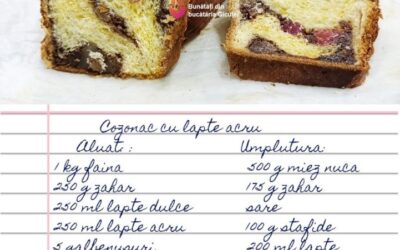 Bunătăți din
bucătăria Gicuței
Cozonac cu lapte acru
Aluat :
Umplutura:
1 kg faina
500 g miez nuca
250 g zahar
175 g zahar
250 ml lapte dulce
sare
250 ml lapte acru
100 g stafide
5 galbenusuri
200 ml lapte